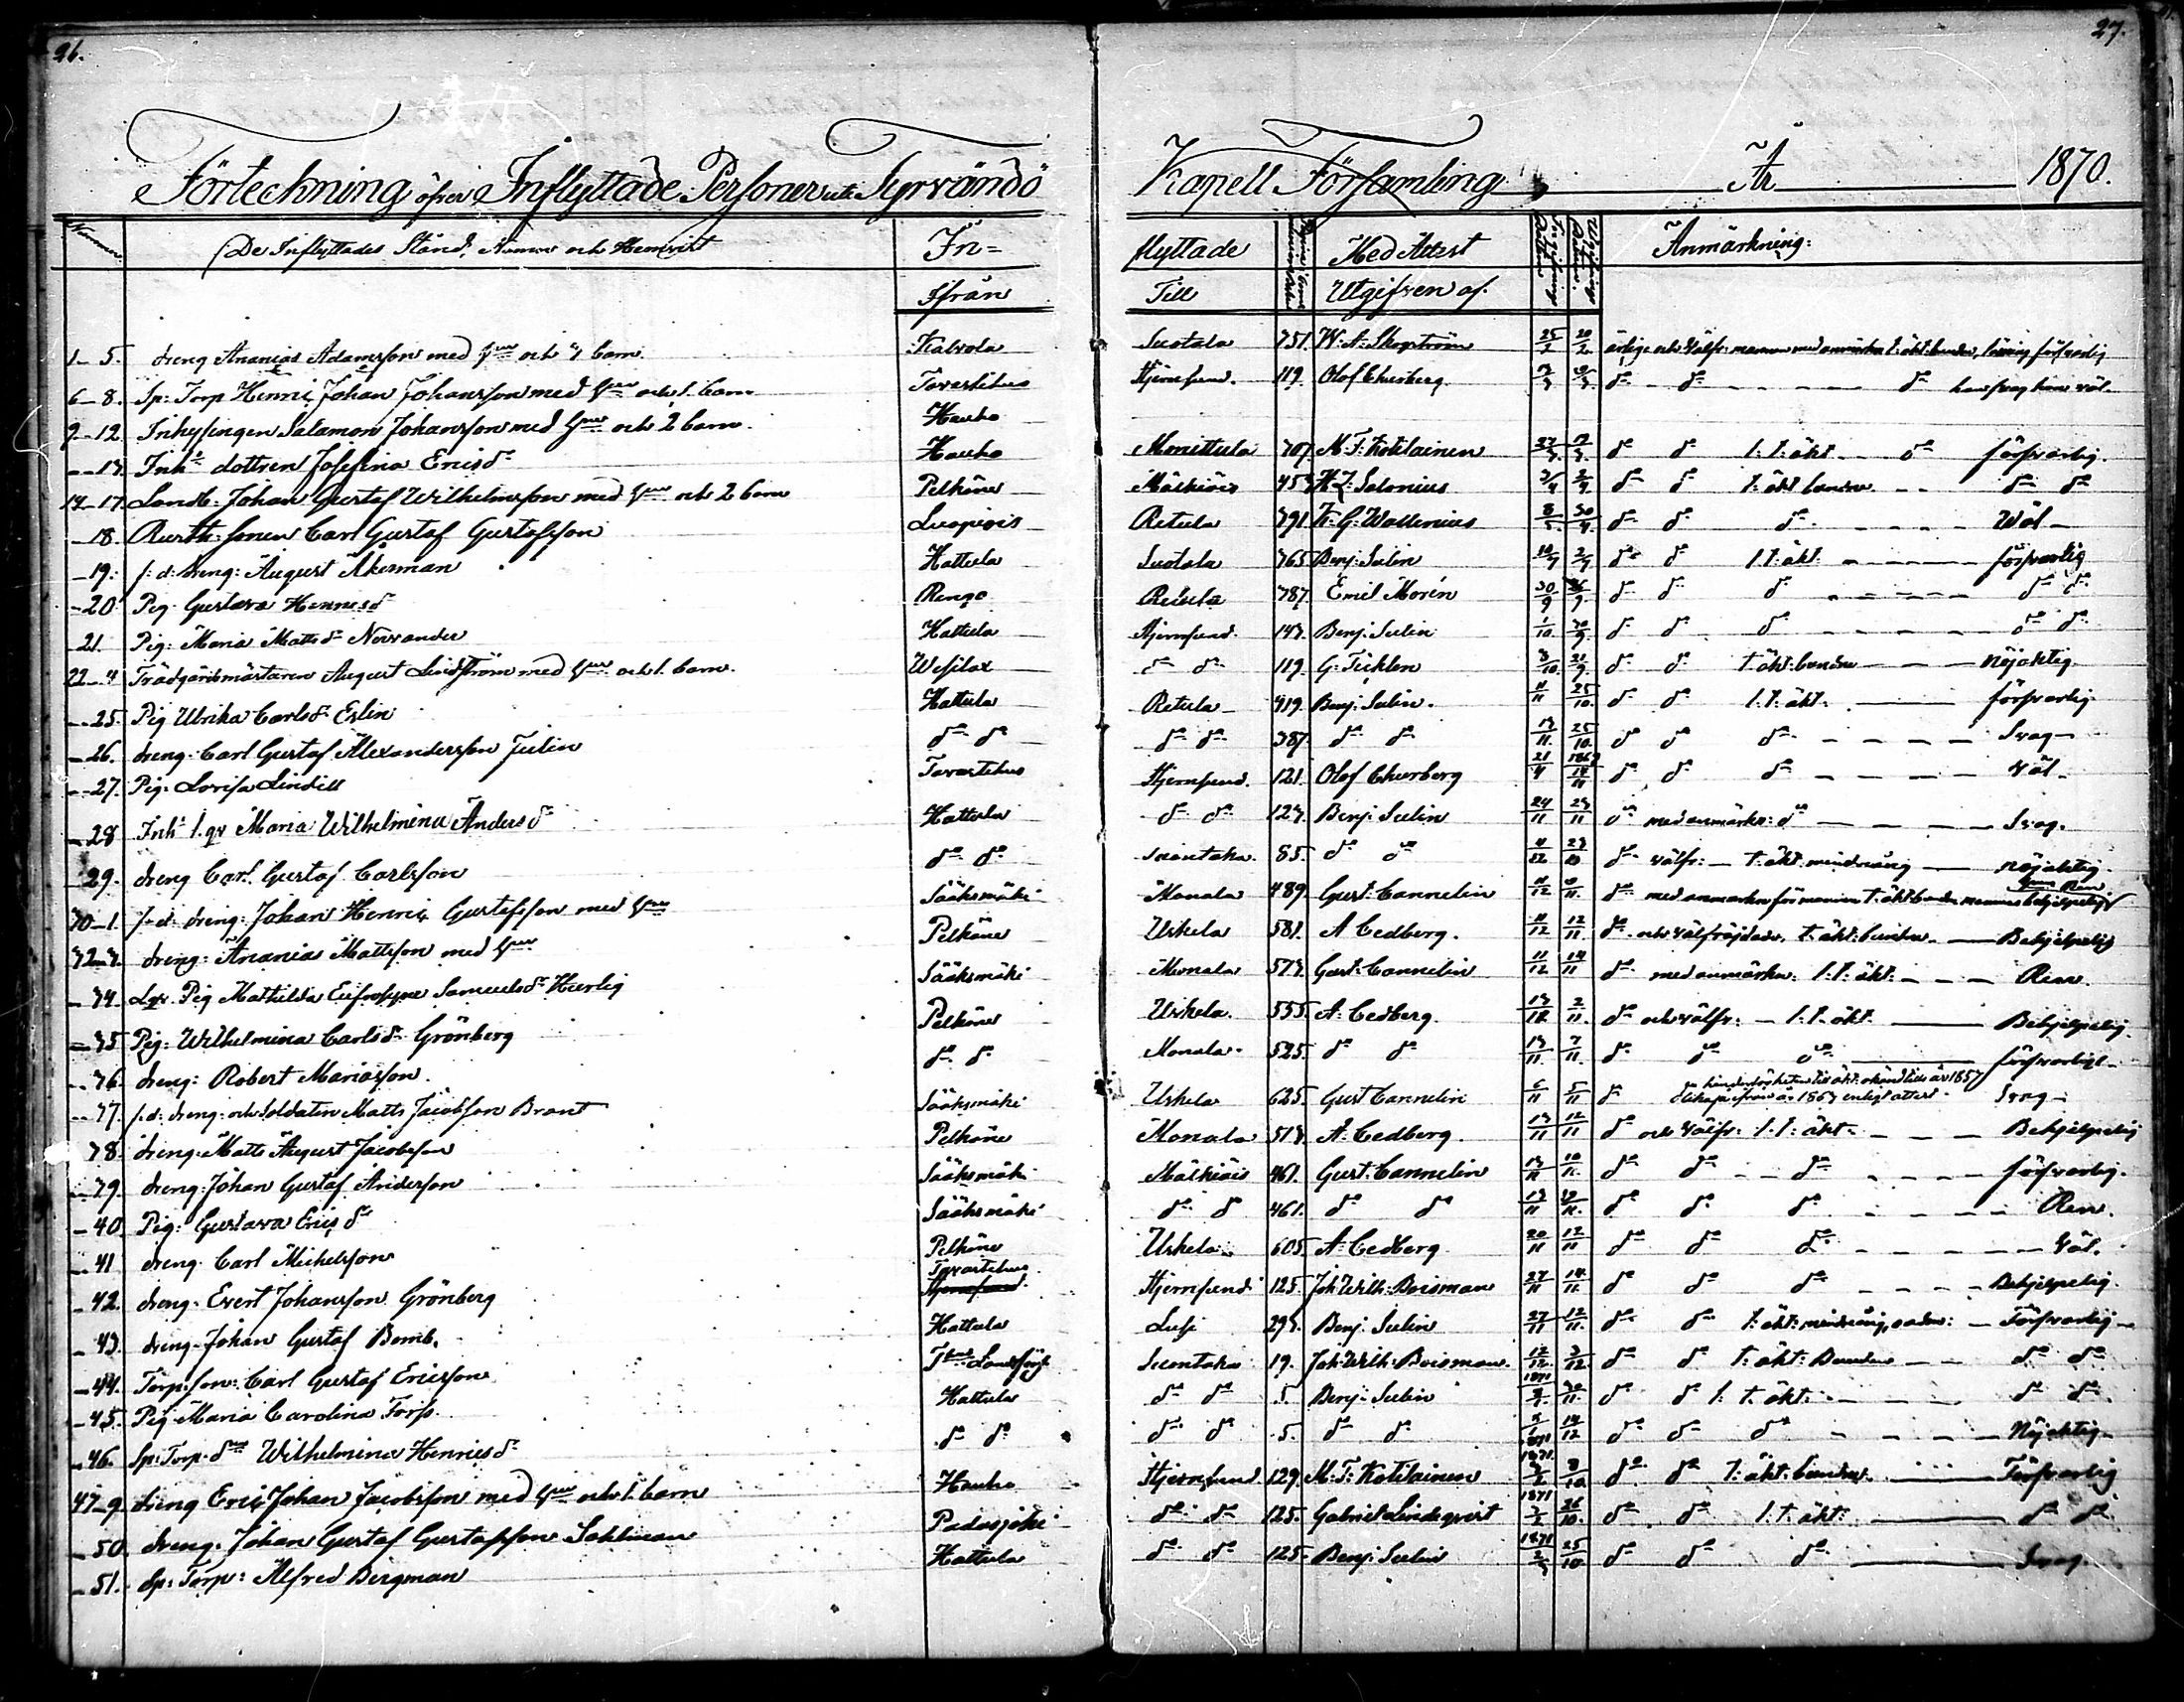 26.
27.
Förteckning öfver Inflyttade Personer uti Tyrvändö Kapell Församling År 1870.
Nummer De Inflyttades Stånd, Namn och Hemvist In= flyttade Med Attest Anmärkning:
Ifrån Till Utgifven af.
1-5. dreng Ananias Adamsson med hu och barn. Kalvola Suotala 751. W. A. Skogström 25/2 20/2
6-8. Sp: Torp Henric Johan Johansson med hu och 1. barn Tavastehus Hjernsund. 119. Olof Churberg.
9-12. Inhysingen Salamon Johansson med hu och 2 barn. Hauho
-13. Inh: dottren Josefina Ericsdr Hauho Monittula 707. M. T. Kotilainen dr dr l. t. äkt. försvarlig.
14-17. Landb: Johan Gustaf Wilhelmsson med hu och 2 barn Pelkäne Mälkiäis H. Z. Salonius dr dr t. äkt bunden dr dr
-18. Rusth: sonen Carl Gustaf Gustafsson Luopiois Retula 791. K. G. Wallenius 8/5. 30/4. dr dr dr Wäl
-19. f. d. dreng: August Åkerman Hattula Suotala 765. Benj: Sulin dr dr l. t. äkt försvarlig
-20. Pig. Gustava Henricsdr Rengo Retula 787. Emil Morén 30/9 dr dr dr dr dr
21. Pig: Maria Mattsdr Norrander Hattula Hjernsund. 143. Benj. Sulin 1/10. 30/9. dr dr dr dr dr
22-4 Trädgårdsmästaren August Lindström med hu och 1. barn. Wesilax dr dr 119. G. Ticklen dr dr t. äkt: bunden nöjaktig
-25. Pig Ulrika Carlsdr Erlin Hattula Retula 419. Benj. Sulin. 11/11 25/10. dr dr l. t. äkt. försvarlig
-26. dreng. Carl Gustaf Alexandersson Julin dr dr dr dr 387. dr dr 13/11. 25/10. dr dr dr Svag
-27. Pig. Lovisa Lindell Tavastehus Hjernsund. 121. Olof Churberg dr dr dr Wäl
-28 Inh: l. qv Maria Wilhelmina Andersdr Hattula dr dr 127. Benj. Sulin 24/11 23/11 dr med anmärkn: dr Svag.
29. dreng Carl Gustaf Carlsson dr dr Suontaka. 85. dr dr dr välfr: t. äkt. mindreårig nöjaktig
30-1. f. d. dreng: Johan Henric Gustafsson med hu Sääksmäki Monala 489. Gust: Cannelin dr med anmärkn för mannen t. äkt bunden
32-3. dreng: Ananias Mattsson med hu Pelkäne Uskela 581. A Cedberg. 11/12 12/11. dr och välfräjdade, t. äkt. bundne Behjelpelig
-34. Lqv. Pig Mathilda Eufrosyne Samuelsdr Hurlig Sääksmäki Monala 573. Gust: Cannelin 11/12 14/11 dr med anmärkn: l. t. äkt. Ren.
-35 Pig: Wilhelmina Carlsdr Grönberg Pelkäne Uskela. 555. A. Cedberg. 2/11. dr och välfr: l. t. äkt. Behjelpelig.
-36. dreng: Robert Mariasson. dr dr Monala. 525. dr dr 13/11. 7/11. dr dr dr försvarlig
-37. f. d. dreng: och Soldaten Matts Jacobsson Brant Sääksmäki Uskela 625. Gust Cannelin 6/11 5/11 dr Svag
38. dreng: Matts August Jacobsson Pelkäne Monala 513. A. Cedberg. 13/11 12/11 dr och välfr: l. t. äkt. Behjelpelig
-39. dreng: Johan Gustaf Andersson Sääksmäki Mälkiäis 461. Gust: Cannelin 13/11 10/11. dr dr dr försvarlig.
-40. Pig: Gustava Ericsdr Sääksmäki dr dr 461. dr dr dr dr dr Ren.
-41 dreng Carl Michelsson Pelkäne Uskela. 605. A. Cedberg. 20/11 12/11 dr dr dr Wäl.
-42. dreng. Evert Johansson Grönberg Tavastehus Hjernsund Hjernsund 125. Joh Wilh: Boisman 27/11 14/11. dr dr dr Behjelpelig.
-43. dreng. Johan Gustaf Bomb. Hattula Lusi 293. Benj. Sulin 27/11 12/11. dr dr t. äkt: mindreårig Försvarlig
-44. Torp: son: Carl Gustaf Ericsson Suontaka 19. Joh: Wilh: Boisman. 12/12. 3/12. dr dr t. äkt: Bunden dr dr
-45. Pig Maria Carolina Forss. Hattula dr dr 5. Benj: Sulin 1871 dr dr l. t. äkt: dr dr
-46. Sp: Torp. dr Wilhelmina Henricsdr dr dr dr dr 5. dr dr 14/12 1871 dr dr dr Nöjaktig
47-9. dreng Eric Johan Jacobsson med hu och 1. barn Hauho Hjernsund 129. M. T. Kotilainen 1871. dr dr t. äkt. bunden Försvarlig
-50. dreng. Johan Gustaf Gustafsson Sahlman Padasjoki dr dr 125. Gabriel Lindeqvist 1871 26/10. dr dr l. t. äkt: dr dr
-51. Sp: Torp: Alfred Bergman Hattula dr dr 125. Benj. Sulin 1871 25/10. dr dr dr Svag